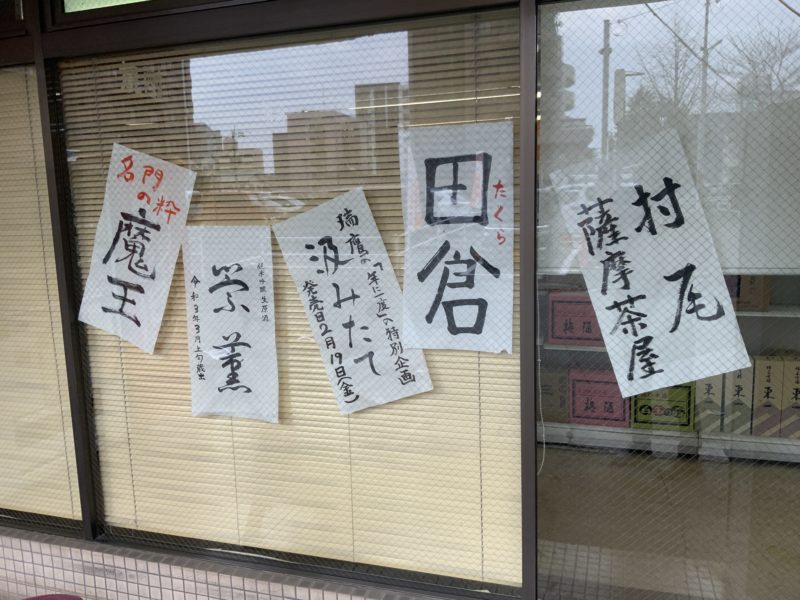 名門の粋
魔王
純米吟醸 生原酒
崇薫
令和3年3月上旬蔵出
瑞鷹の「年に一度」の特別企画
汲みたて
発売日2月19日(金)
田倉
たくら
村尾
薩摩茶屋
梅酒
梅酒
東
東